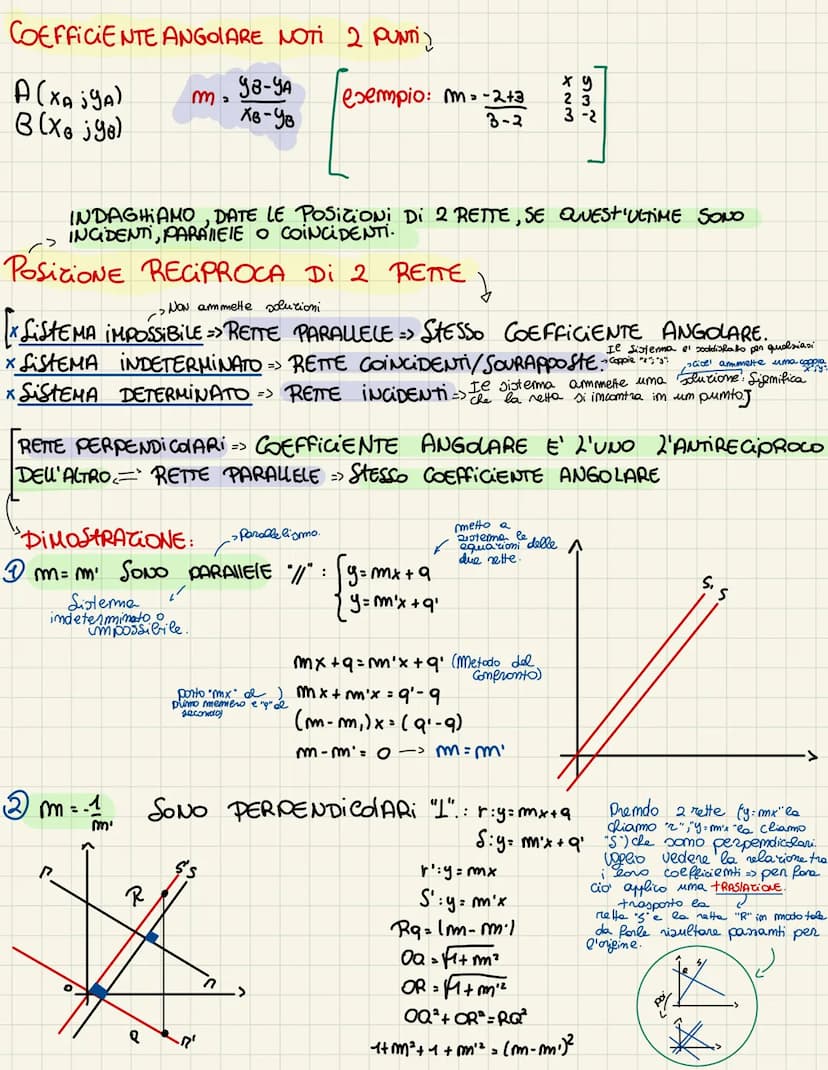 COEFFICIENTE ANGOLARE NOTI 2 PUNTI
A(xA;yA)
B(xB;yB)
m = yB-yA / xB-yB
esempio: m = -2+3 / 3-2
x y
2 3
3 -2
INDAGHIAMO, DATE LE POSIZIONI DI 2 RETTE, SE QUEST'ULTIME SONO
INCIDENTI, PARALLELE O COINCIDENTI.
POSIZIONE RECIPROCA DI 2 RETTE
Non ammette soluzioni
x SISTEMA IMPOSSIBILE => RETTE PARALLELE => STESSO COEFFICIENTE ANGOLARE.
x SISTEMA INDETERMINATO => RETTE COINCIDENTI/SOVRAPPOSTE. Il sistema e' soddisfatto per qualsiasi coppia "x;y"
x SISTEMA DETERMINATO => RETTE INCIDENTI => Il sistema ammette una soluzione. Significa
che la retta si incontra in un punto]
cioe' ammette una coppia x;y
RETTE PERPENDICOLARI => COEFFICIENTE ANGOLARE E' L'UNO L'ANTIRECIPROCO
DELL'ALTRO. => RETTE PARALLELE => STESSO COEFFICIENTE ANGOLARE
DIMOSTRAZIONE:
-> Parallelismo.
metto a
sistema le
equazioni delle
due rette.
1 m = m' SONO PARALLELE "//" : {y=mx+q
{y=m'x+q'
Sistema
indeterminato o
impossibile.
S, S
mx+q=m'x+q' (Metodo del
Confronto)
porto "mx" al
primo membro e "q" al
secondo)
mx+m'x=q'-q
(m-m,)x=(q'-q)
m-m'=0 -> m=m'
2 m = -1/m' SONO PERPENDICOLARI "⊥".: r:y=mx+q
S:y= m'x+q'
r':y=mx
S':y=m'x
RQ=(m-m')
OQ=√1+m²
OR=√1+m'²
OQ²+OR²=RQ²
1+m²+1+m'²=(m-m')²
r
R
S'
S
o
r
Q
r'
Prendo 2 rette (y=mx" la
chiamo "r";"y=m'x "la chiamo
"S") che sono perpendicolari.
Voglio vedere la relazione tra
i loro coefficienti => per fare
cio' applico una TRASLAZIONE.
trasporto la
retta "S" e la retta "R" in modo tale
da farle risultare passanti per
l'origine.
R S
poi